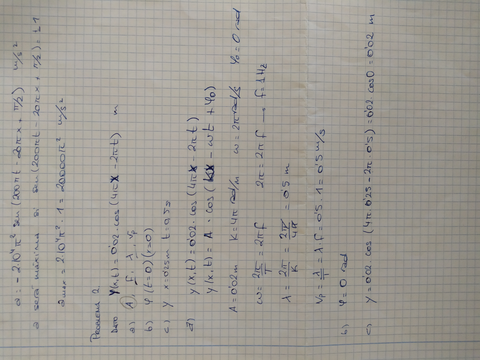 a = -2·10⁴π² sen (200πt - 20πx + π/2) m/s²
a será máxima si sen (200πt - 20πx + π/2) = ±1
a max = 2·10⁴π² · 1 = 20000π² m/s²
Problema 2
Dato y(x,t) = 0'02 · cos (4πx - 2πt) m
a) A, f, λ, vp
b) φ (t=0) (x=0)
c) y x=0'25m t=0'5s
a) y(x,t) = 0'02 · cos (4πx - 2πt)
y(x,t) = A · cos (kx - ωt + φ0)
A = 0'02m K = 4π rad/m ω = 2π rad/s φ0 = 0 rad
ω = 2π/T = 2πf 2π = 2πf → f = 1Hz
λ = 2π/K = 2π/4π = 0'5 m
Vp = λ/T = λ f = 0'5 · 1 = 0'5 m/s
b) φ = 0 rad
c) y = 0'02 cos (4π 0'25 - 2π 0'5) = 0'02 cos0 = 0'02 m